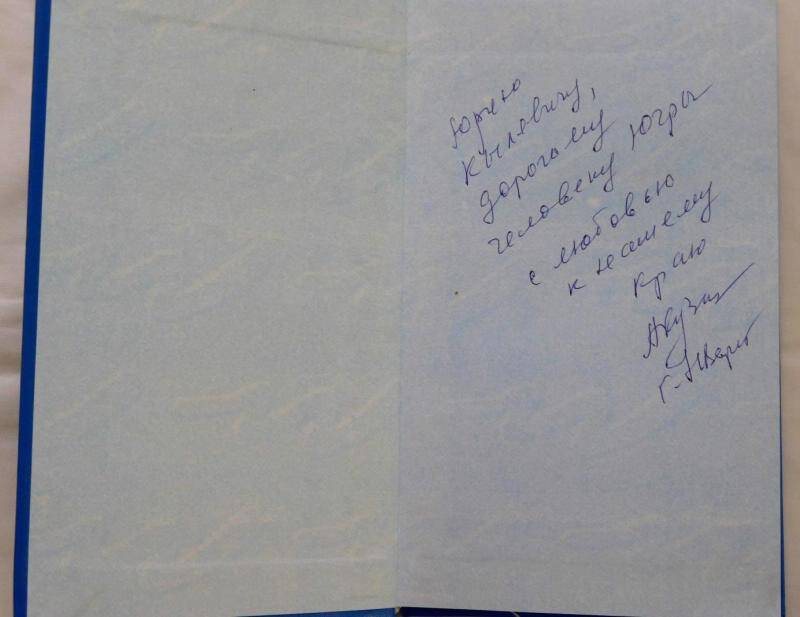 Юрию
Кылевичу,
дорогому
человеку Югры
с любовью
к нашему
краю